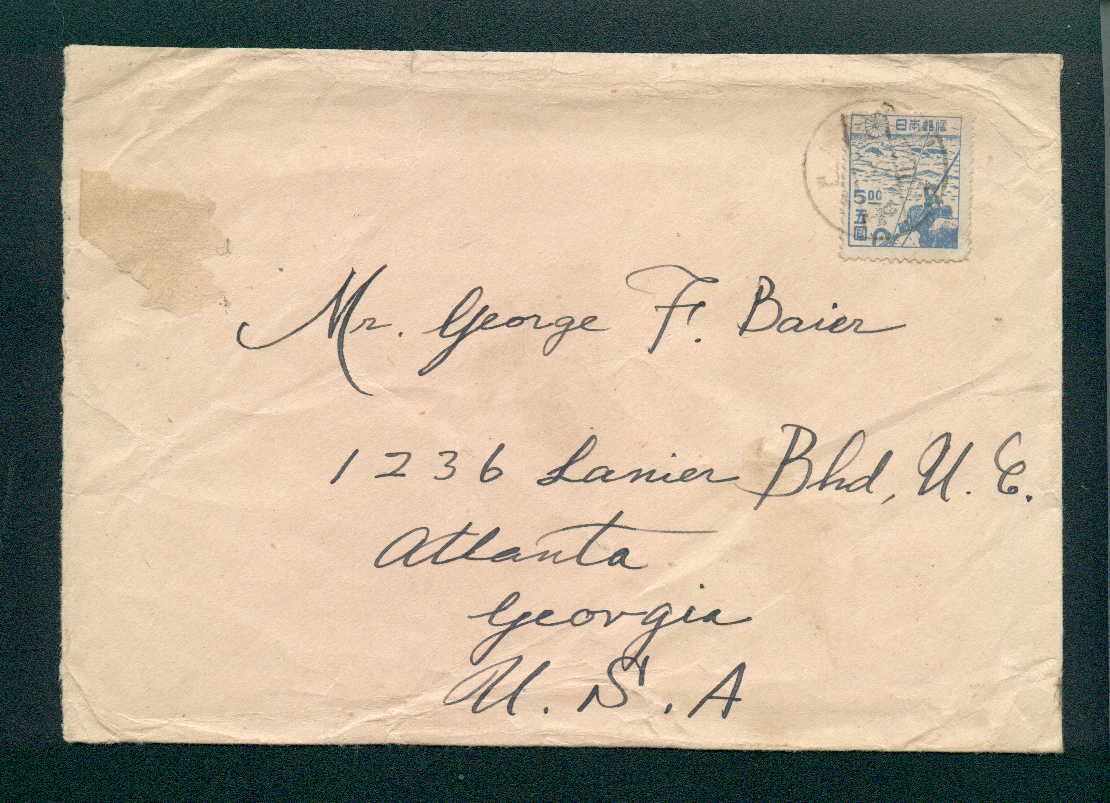 日本郵便
5.00
五圓
Mr. George F. Baier
1236 Lanier Blvd, N. E.
Atlanta
Georgia
U. S. A